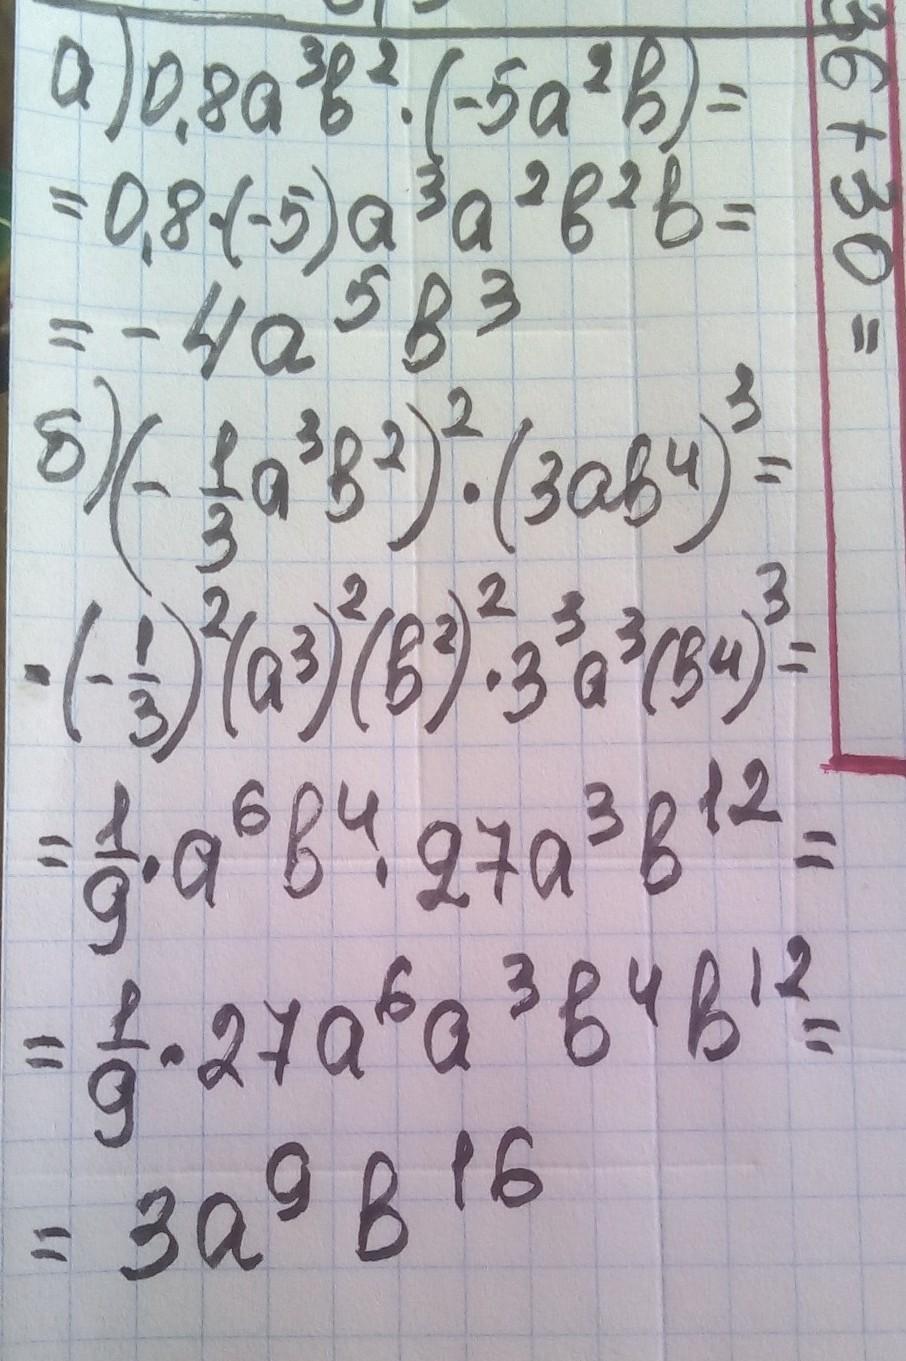 а) 0,8a³b² · (-5a²b) =
= 0,8·(-5)a³a²b²b =
= -4a⁵b³
б) (-1/3a³b²)² · (3ab⁴)³ =
· (-1/3)²(a³)²(b²)² · 3³a³(b⁴)³ =
= 1/9 · a⁶b⁴ · 27a³b¹² =
= 1/9 · 27a⁶a³b⁴b¹² =
= 3a⁹b¹⁶
36 + 30 =